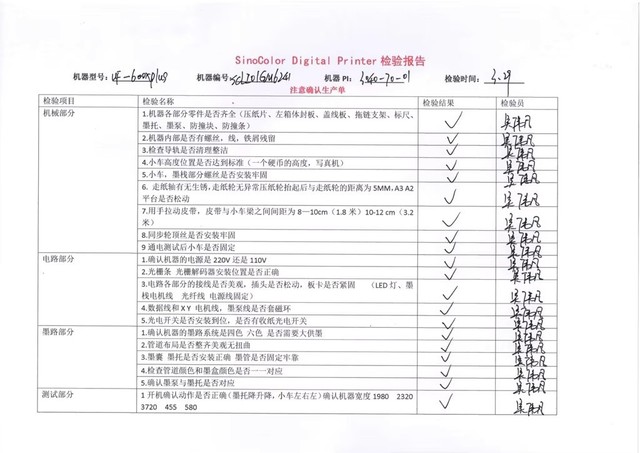 SinoColor Digital Printer 检验报告
机器型号: 机器编号: 机器 PI: 3040-70-01 检验时间: 3.29
注意确认生产单
检验项目 检验名称 检验结果 检验员
机械部分 1.机器各部分零件是否齐全（压纸片、左箱体封板、盖线板、拖链支架、标尺、
墨托、墨泵、防撞块、防撞条） ✓
2.机器内部是否有螺丝，线，铁屑残留 ✓
3.检查导轨是否清理整洁 ✓
4.小车高度位置是否达到标准（一个硬币的高度，写真机） ✓
5.小车，墨栈部分螺丝是否安装牢固 ✓
6. 走纸轴有无生锈,走纸轮无异常压纸轮抬起后与走纸轮的距离为 5MM,A3 A2
平台是否松动 ✓
7.用手拉动皮带，皮带与小车梁之间间距为 8—10cm（1.8 米）10-12 cm（3.2
米） ✓
8.同步轮顶丝是否安装牢固 ✓
9 通电测试后小车是否固定 ✓
电路部分 1.确认机器的电源是 220V 还是 110V ✓
2.光栅条 光栅解码器安装位置是否正确 ✓
3.电路各部分的接线是否美观，插头是否松动，板卡是否紧固 （LED 灯、墨
栈电机线 光纤线 电源线固定） ✓
4.数据线和 X Y 电机线，墨泵线是否套磁环 ✓
5.光电开关是否安装到位，是否有收纸光电开关 ✓
墨路部分 1.确认机器的墨路系统是四色 六色 是否需要大供墨 ✓
2.管道布局是否整齐美观无扭曲 ✓
3.墨囊 墨托是否安装正确 墨管是否固定牢靠 ✓
4.检查管道颜色和墨盒颜色是否一一对应 ✓
5.确认墨泵与墨托是否对应 ✓
测试部分 1 开机确认动作是否正确（墨托降升降，小车左右左）确认机器宽度 1980 2320
3720 455 580 ✓